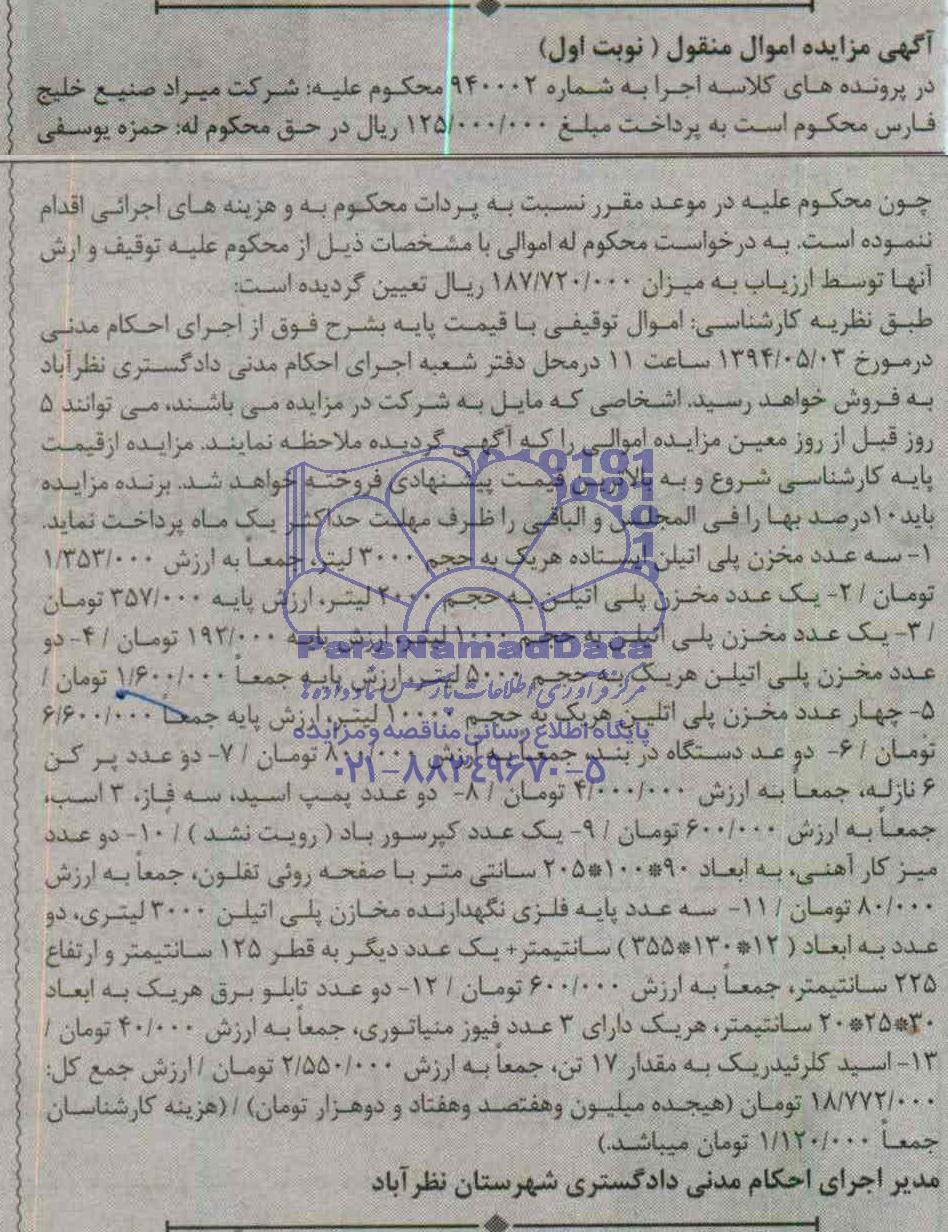 آگهی مزایده اموال منقول ( نوبت اول)
در پرونده های کلاسه اجرا به شماره ۹۴۰۰۰۲ محکوم علیه: شرکت میراد صنیع خلیج
فارس محکوم است به پرداخت مبلغ ۱۲۵/۰۰۰/۰۰۰ ریال در حق محکوم له: حمزه یوسفی
چون محکوم علیه در موعد مقرر نسبت به پردات محکوم به و هزینه های اجرائی اقدام
ننموده است. به درخواست محکوم له اموالی با مشخصات ذیل از محکوم علیه توقیف و ارش
آنها توسط ارزیاب به میزان ۱۸۷/۷۲۰/۰۰۰ ریال تعیین گردیده است:
طبق نظریه کارشناسی: اموال توقیفی با قیمت پایه بشرح فوق از اجرای احکام مدنی
درمورخ ۱۳۹۴/۰۵/۰۳ ساعت ۱۱ درمحل دفتر شعبه اجرای احکام مدنی دادگستری نظرآباد
به فروش خواهد رسید. اشخاصی که مایل به شرکت در مزایده می باشند، می توانند ۵
روز قبل از روز معین مزایده اموالی را که آگهی گردیده ملاحظه نمایند. مزایده ازقیمت
پایه کارشناسی شروع و به بالاترین قیمت پیشنهادی فروخته خواهد شد. برنده مزایده
باید۱۰درصد بها را فی المجلس و الباقی را ظرف مهلت حداکثر یک ماه پرداخت نماید.
۱- سه عدد مخزن پلی اتیلن ایستاده هریک به حجم ۳۰۰۰ لیتر، جمعاً به ارزش ۱/۳۵۳/۰۰۰
تومان / ۲- یک عدد مخزن پلی اتیلن به حجم ۲۰۰۰ لیتر، ارزش پایه ۳۵۷/۰۰۰ تومان
/ ۳- یک عدد مخزن پلی اتیلن به حجم ۱۰۰۰ لیتر، ارزش پایه ۱۹۲/۰۰۰ تومان / ۴- دو
عدد مخزن پلی اتیلن هریک به حجم ۵۰۰۰ لیتر، ارزش پایه جمعاً ۱/۶۰۰/۰۰۰ تومان /
۵- چهار عدد مخزن پلی اتلین هریک به حجم ۱۰۰۰۰ لیتر، ارزش پایه جمعاً ۶/۶۰۰/۰۰۰
تومان / ۶- دو عد دستگاه در بند، جمعاً به ارزش ۸۰۰/۰۰۰ تومان / ۷- دو عدد پر کن
۶ نازله، جمعاً به ارزش ۴/۰۰۰/۰۰۰ تومان / ۸- دو عدد پمپ اسید، سه فاز، ۳ اسب،
جمعاً به ارزش ۶۰۰/۰۰۰ تومان / ۹- یک عدد کپرسور باد ( رویت نشد ) / ۱۰- دو عدد
میز کار آهنی، به ابعاد ۹۰*۱۰۰*۲۰۵ سانتی متر با صفحه روئی تفلون، جمعاً به ارزش
۸۰/۰۰۰ تومان / ۱۱- سه عدد پایه فلزی نگهدارنده مخازن پلی اتیلن ۳۰۰۰ لیتری، دو
عدد به ابعاد ( ۱۲*۱۳۰*۳۵۵ ) سانتیمتر+ یک عدد دیگر به قطر ۱۲۵ سانتیمتر و ارتفاع
۲۲۵ سانتیمتر، جمعاً به ارزش ۶۰۰/۰۰۰ تومان / ۱۲- دو عدد تابلو برق هریک به ابعاد
۳۰*۲۵*۲۰ سانتیمتر، هریک دارای ۳ عدد فیوز منیاتوری، جمعاً به ارزش ۴۰/۰۰۰ تومان /
۱۳- اسید کلرئیدریک به مقدار ۱۷ تن، جمعاً به ارزش ۲/۵۵۰/۰۰۰ تومان / ارزش جمع کل:
۱۸/۷۷۲/۰۰۰ تومان (هیجده میلیون وهفتصد وهفتاد و دوهزار تومان) / (هزینه کارشناسان
جمعاً ۱/۱۲۰/۰۰۰ تومان میباشد.)
مدیر اجرای احکام مدنی دادگستری شهرستان نظرآباد
ParsNamadData
مرکز فرآوری اطلاعات پارس نماد داده ها
پایگاه اطلاع رسانی مناقصه و مزایده
۰۲۱-۸۸۳۴۹۶۷۰-۵